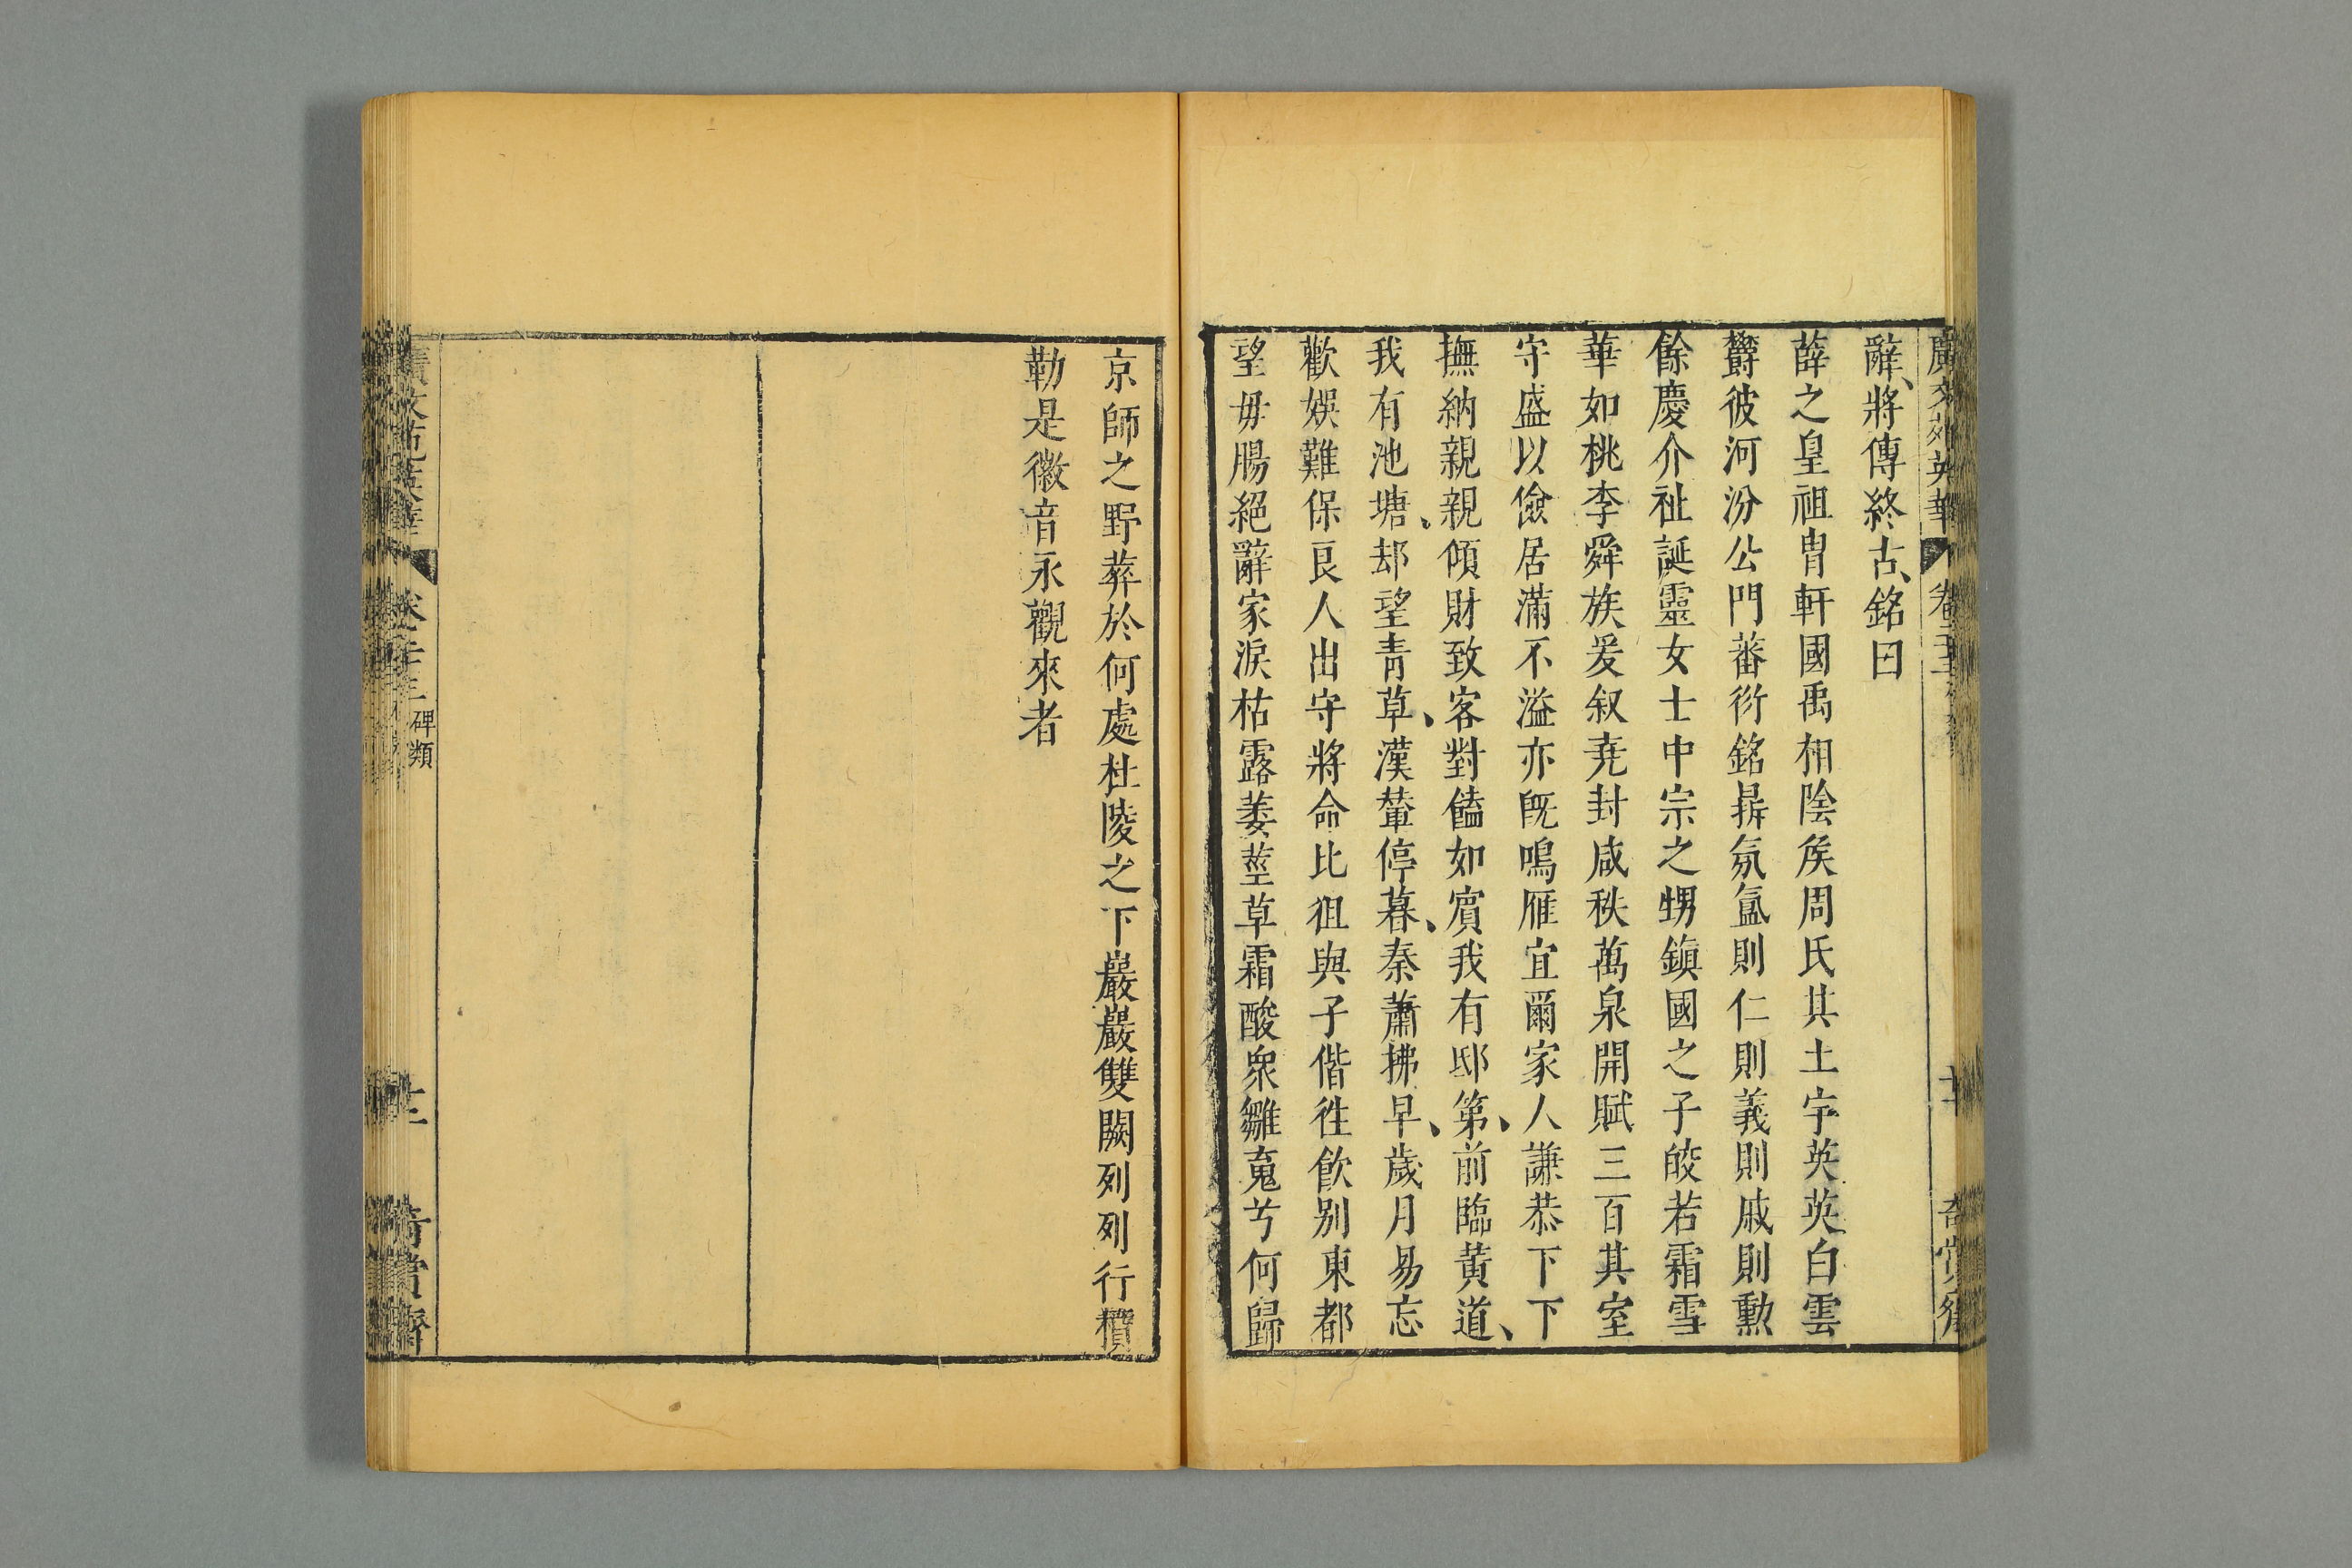 辭、將傳終古、銘曰
薛之皇祖胄軒國禹相陰矦周氏其土宇英英白雲
欝彼河汾公門蕃衍銘鼎氛氳則仁則義則戚則勲
餘慶介祉誕靈女士中宗之甥鎮國之子皎若霜雪
華如桃李舜族爰叙堯封咸秩萬泉開賦三百其室
守盛以儉居滿不溢亦既鳴雁宜爾家人謙恭下下
撫納親親傾財致客對饁如賓我有邸第、前臨黄道、
我有池塘、却望青草、漢輦停暮、秦蕭拂早、歲月易忘
歡娛難保良人出守將命比徂與子偕徃飲別東都
望毋腸絕辭家淚枯露萎莖草霜酸衆雛䰟兮何歸
京師之野葬於何處杜陵之下巖巖雙闕列列行檟
勒是徽音永觀來者
廣文苑英華 卷二十三 碑類